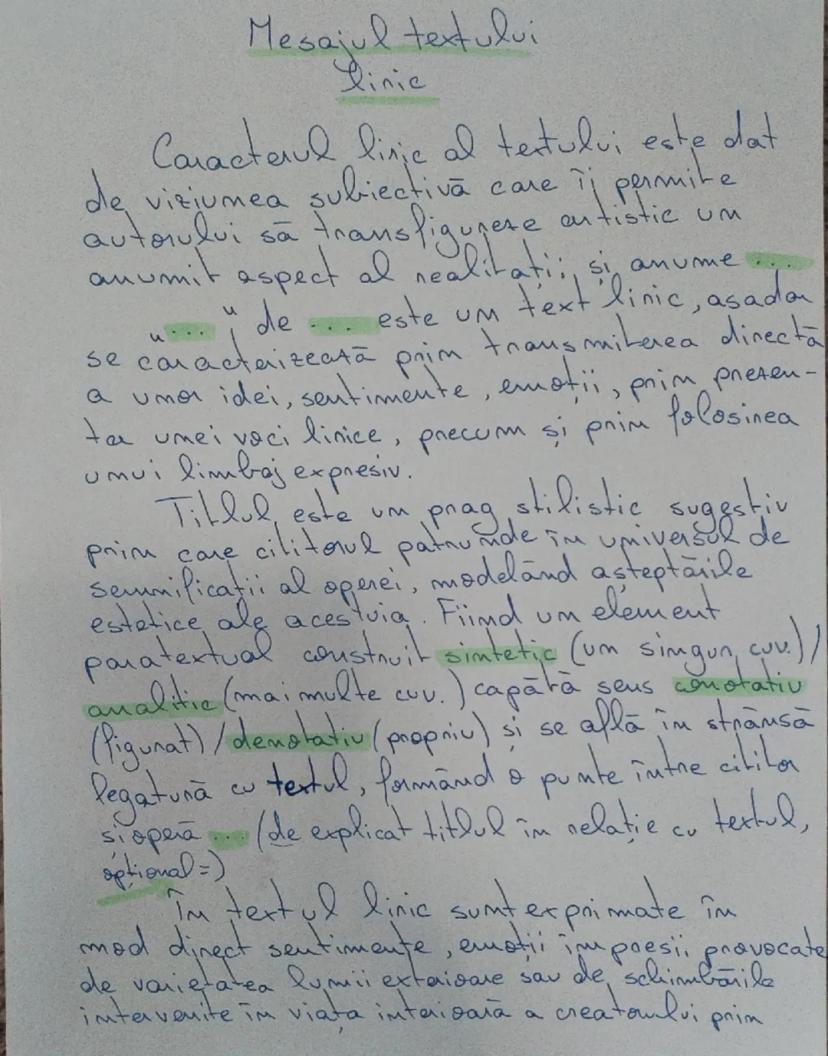 Mesajul textului
liric
Caracterul liric al textului este dat
de viziunea subiectivă care îi permite
autorului să transfigureze artistic un
anumit aspect al realității, și anume ...
"..." de ... este un text liric, asadar
se caracterizează prin transmiterea directă
a unor idei, sentimente, emoții, prin prezen-
ta unei voci lirice, precum și prin folosirea
unui limbaj expresiv.
Titlul este un prag stilistic sugestiv
prin care cititorul patrunde în universul de
semnificații al operei, modelând așteptările
estetice ale acestuia. Fiind un element
paratextual construit sintetic (un singur cuv.)/
analitic (mai multe cuv.) capătă sens conotativ
(figurat)/denotativ (propriu) și se află în strânsă
legatură cu textul, formând o punte între cititor
și operă ... (de explicat titlul în relație cu textul,
opțional=)
În textul liric sunt exprimate în
mod direct sentimente, emoții impresii provocate
de varietatea lumii exterioare sau de schimbările
intervenite în viața interioară a creatorului prin